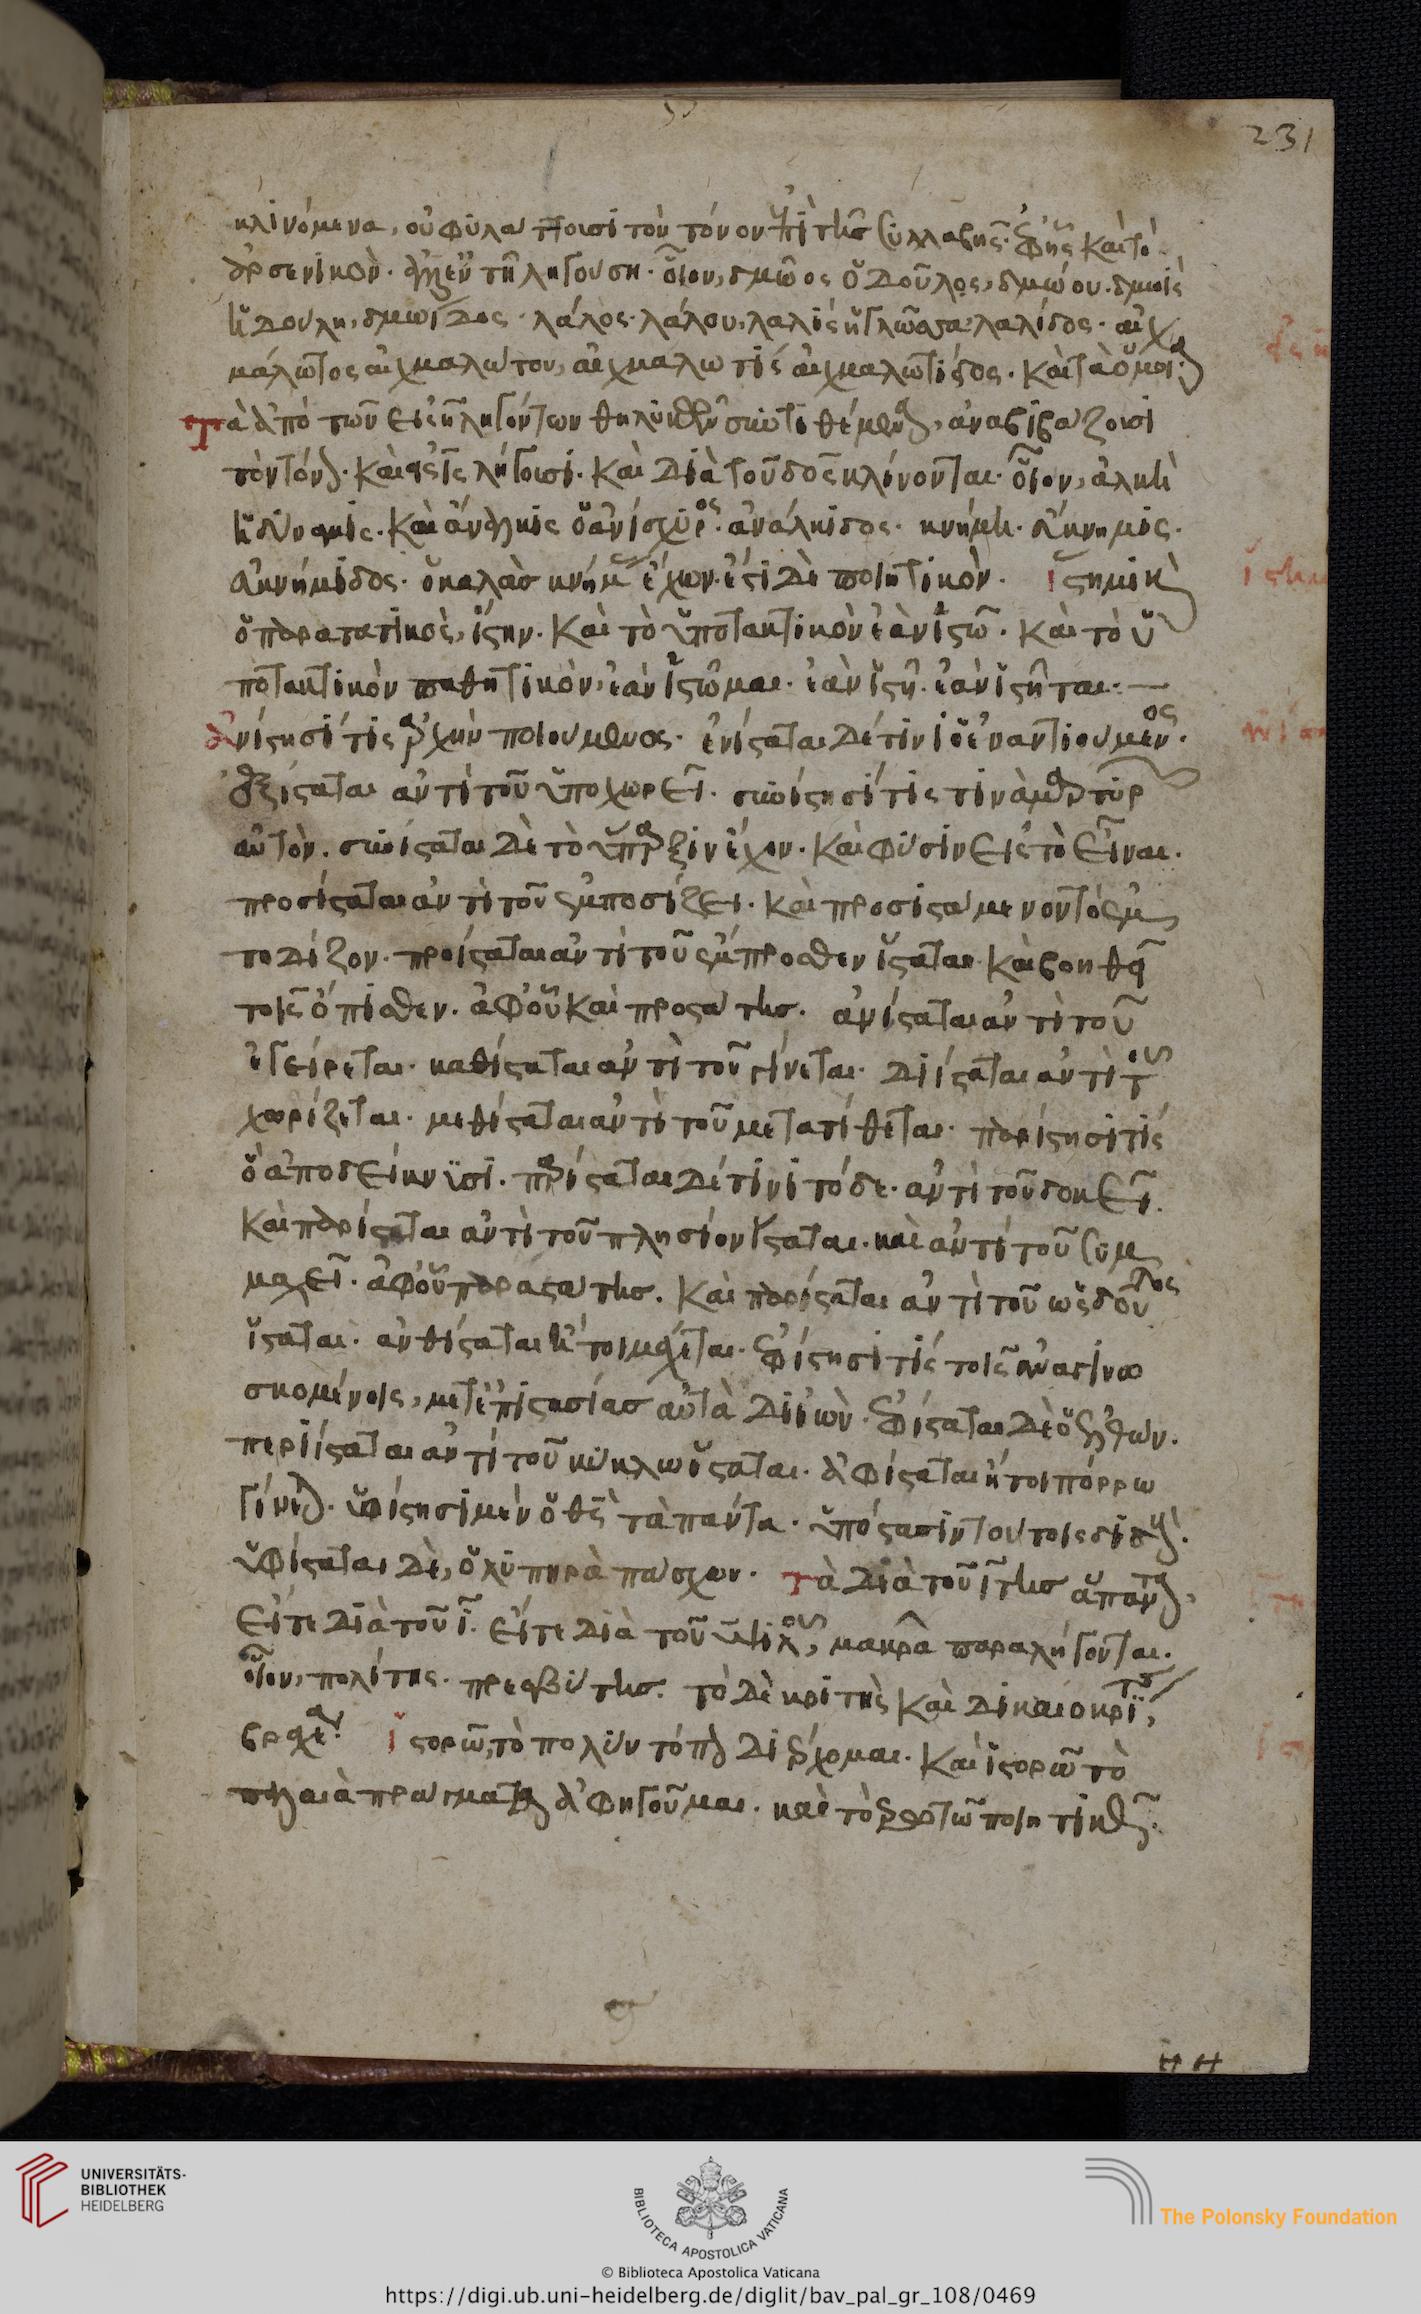 231
κλινόμενα, οὐ φυλάττουσι τὸν τόνον ἐπὶ τῆς συλλαβῆς ἐφ' ἧς καὶ τὸ
ἀρσενικὸν. ἀλλ' ἐν τῇ ληγούση. οἷον, δμῶος ὁ δοῦλος, δμώου. δμωὶς
ἡ δούλη, δμωίδος. λάλος. λάλου, λαλίς ἡ γλῶσσα λαλίδος. αἰχ
μάλωτος αἰχμαλώτου, αἰχμαλωτίς αἰχμαλωτίδος. καὶ τὰ ὅμοια
τὰ ἀπὸ τῶν εἰς η ληγόντων θηλυκῶν συντιθέμενα, ἀναβιβάζουσι
τὸν τόνον. καὶ εἰς ις λήγουσι. καὶ διὰ τοῦ δος κλίνονται. οἷον, ἀλκὴ
ἡ δύναμις. καὶ ἄναλκις ὁ ἀνίσχυρος. ἀνάλκιδος. κνήμη. εὔκνημις.
εὐκνήμιδος. ὁ καλὰς κνήμας ἔχων. ἔστι δὲ ποιητικὸν. ἵστημι καὶ
ὁ παρατατικὸς, ἵστην. καὶ τὸ ὑποτακτικὸν ἐὰν ἱστῶ. καὶ τὸ ὑ
ποτακτικὸν παθητικὸν, ἐὰν ἱστῶμαι. ἐὰν ἱστῇ. ἐὰν ἱστῆται.
ἐνίστησί τις ἀρχὴν ποιούμενος. ἐνίσταται δέ τινι ὁ ἐναντιούμενος.
ἐξίσταται ἀντὶ τοῦ ὑποχωρεῖ. συνίστησί τις τινὰ μαρτυρ
αὐτὸν. συνίσταται δὲ τὸ ὕπαρξιν ἔχον. καὶ φύσιν εἰς τὸ εἶναι.
προσίσταται ἀντὶ τοῦ ἐμποδίζει. καὶ προσιστάμενον τὸ ἐμ
ποδίζον. προίσταται ἀντὶ τοῦ ἔμπροσθεν ἵσταται καὶ βοηθεῖ
τοῖς ὄπισθεν. ἀφ' οὗ καὶ προστάτης. ἀνίσταται ἀντὶ τοῦ
ἐγείρεται. καθίσταται ἀντὶ τοῦ γίνεται. διίσταται ἀντὶ τοῦ
χωρίζεται. μεθίσταται ἀντὶ τοῦ μετατίθεται. παρίστησί τις
ὃ ἀποδείκνυσι. παρίσταται δέ τινι τόδε. ἀντὶ τοῦ δοκεῖ.
καὶ παρίσταται ἀντὶ τοῦ πλησίον ἵσταται. καὶ ἀντὶ τοῦ συμ
μαχεῖ. ἀφ' οὗ παραστάτης. καὶ παρίσταται ἀντὶ τοῦ ὡς δοῦλος
ἵσταται. ἀνθίσταται ἤτοι μάχεται. ἐφίστησί τις τοῖς ἀναγινω
σκομένοις, μετ' ἐπιστασίας αὐτὰ διιὼν. ἐφίσταται δὲ ὁ ἐλθών.
περιίσταται ἀντὶ τοῦ κύκλω ἵσταται. ἀφίσταται ἤτοι πόρρω
γίνεται. ὑφίστησι μὲν ὁ θεὸς τὰ πάντα.
ὑφίσταται δὲ, ὁ λυπηρὰ πάσχων. τὰ διὰ τοῦ ιτης ἅπαντα,
εἴτε διὰ τοῦ ι. εἴτε διὰ τοῦ υ ψιλοῦ, μακρᾶ παραλήγονται.
οἷον, πολίτης. πρεσβύτης. τὸ δὲ κριτὴς καὶ δικαιοκρίτης,
βραχέα. ἱστορῶ, τὸ πολὺν τόπον διέρχομαι. καὶ ἱστορῶ τὸ
παλαιὰ πράγματα ἀφηγοῦμαι. καὶ τὸ ἐρωτῶ ποιητικῶς.
UNIVERSITÄTS-
BIBLIOTHEK
HEIDELBERG
BIBLIOTECA APOSTOLICA VATICANA
The Polonsky Foundation
© Biblioteca Apostolica Vaticana
https://digi.ub.uni-heidelberg.de/diglit/bav_pal_gr_108/0469